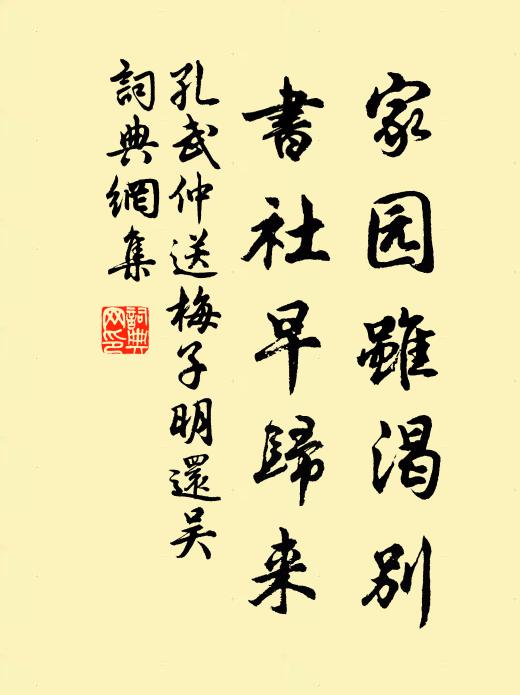 家园雖渴别
書社早歸来
孔武仲送梅子明還吴
詞典網集
詞典网印